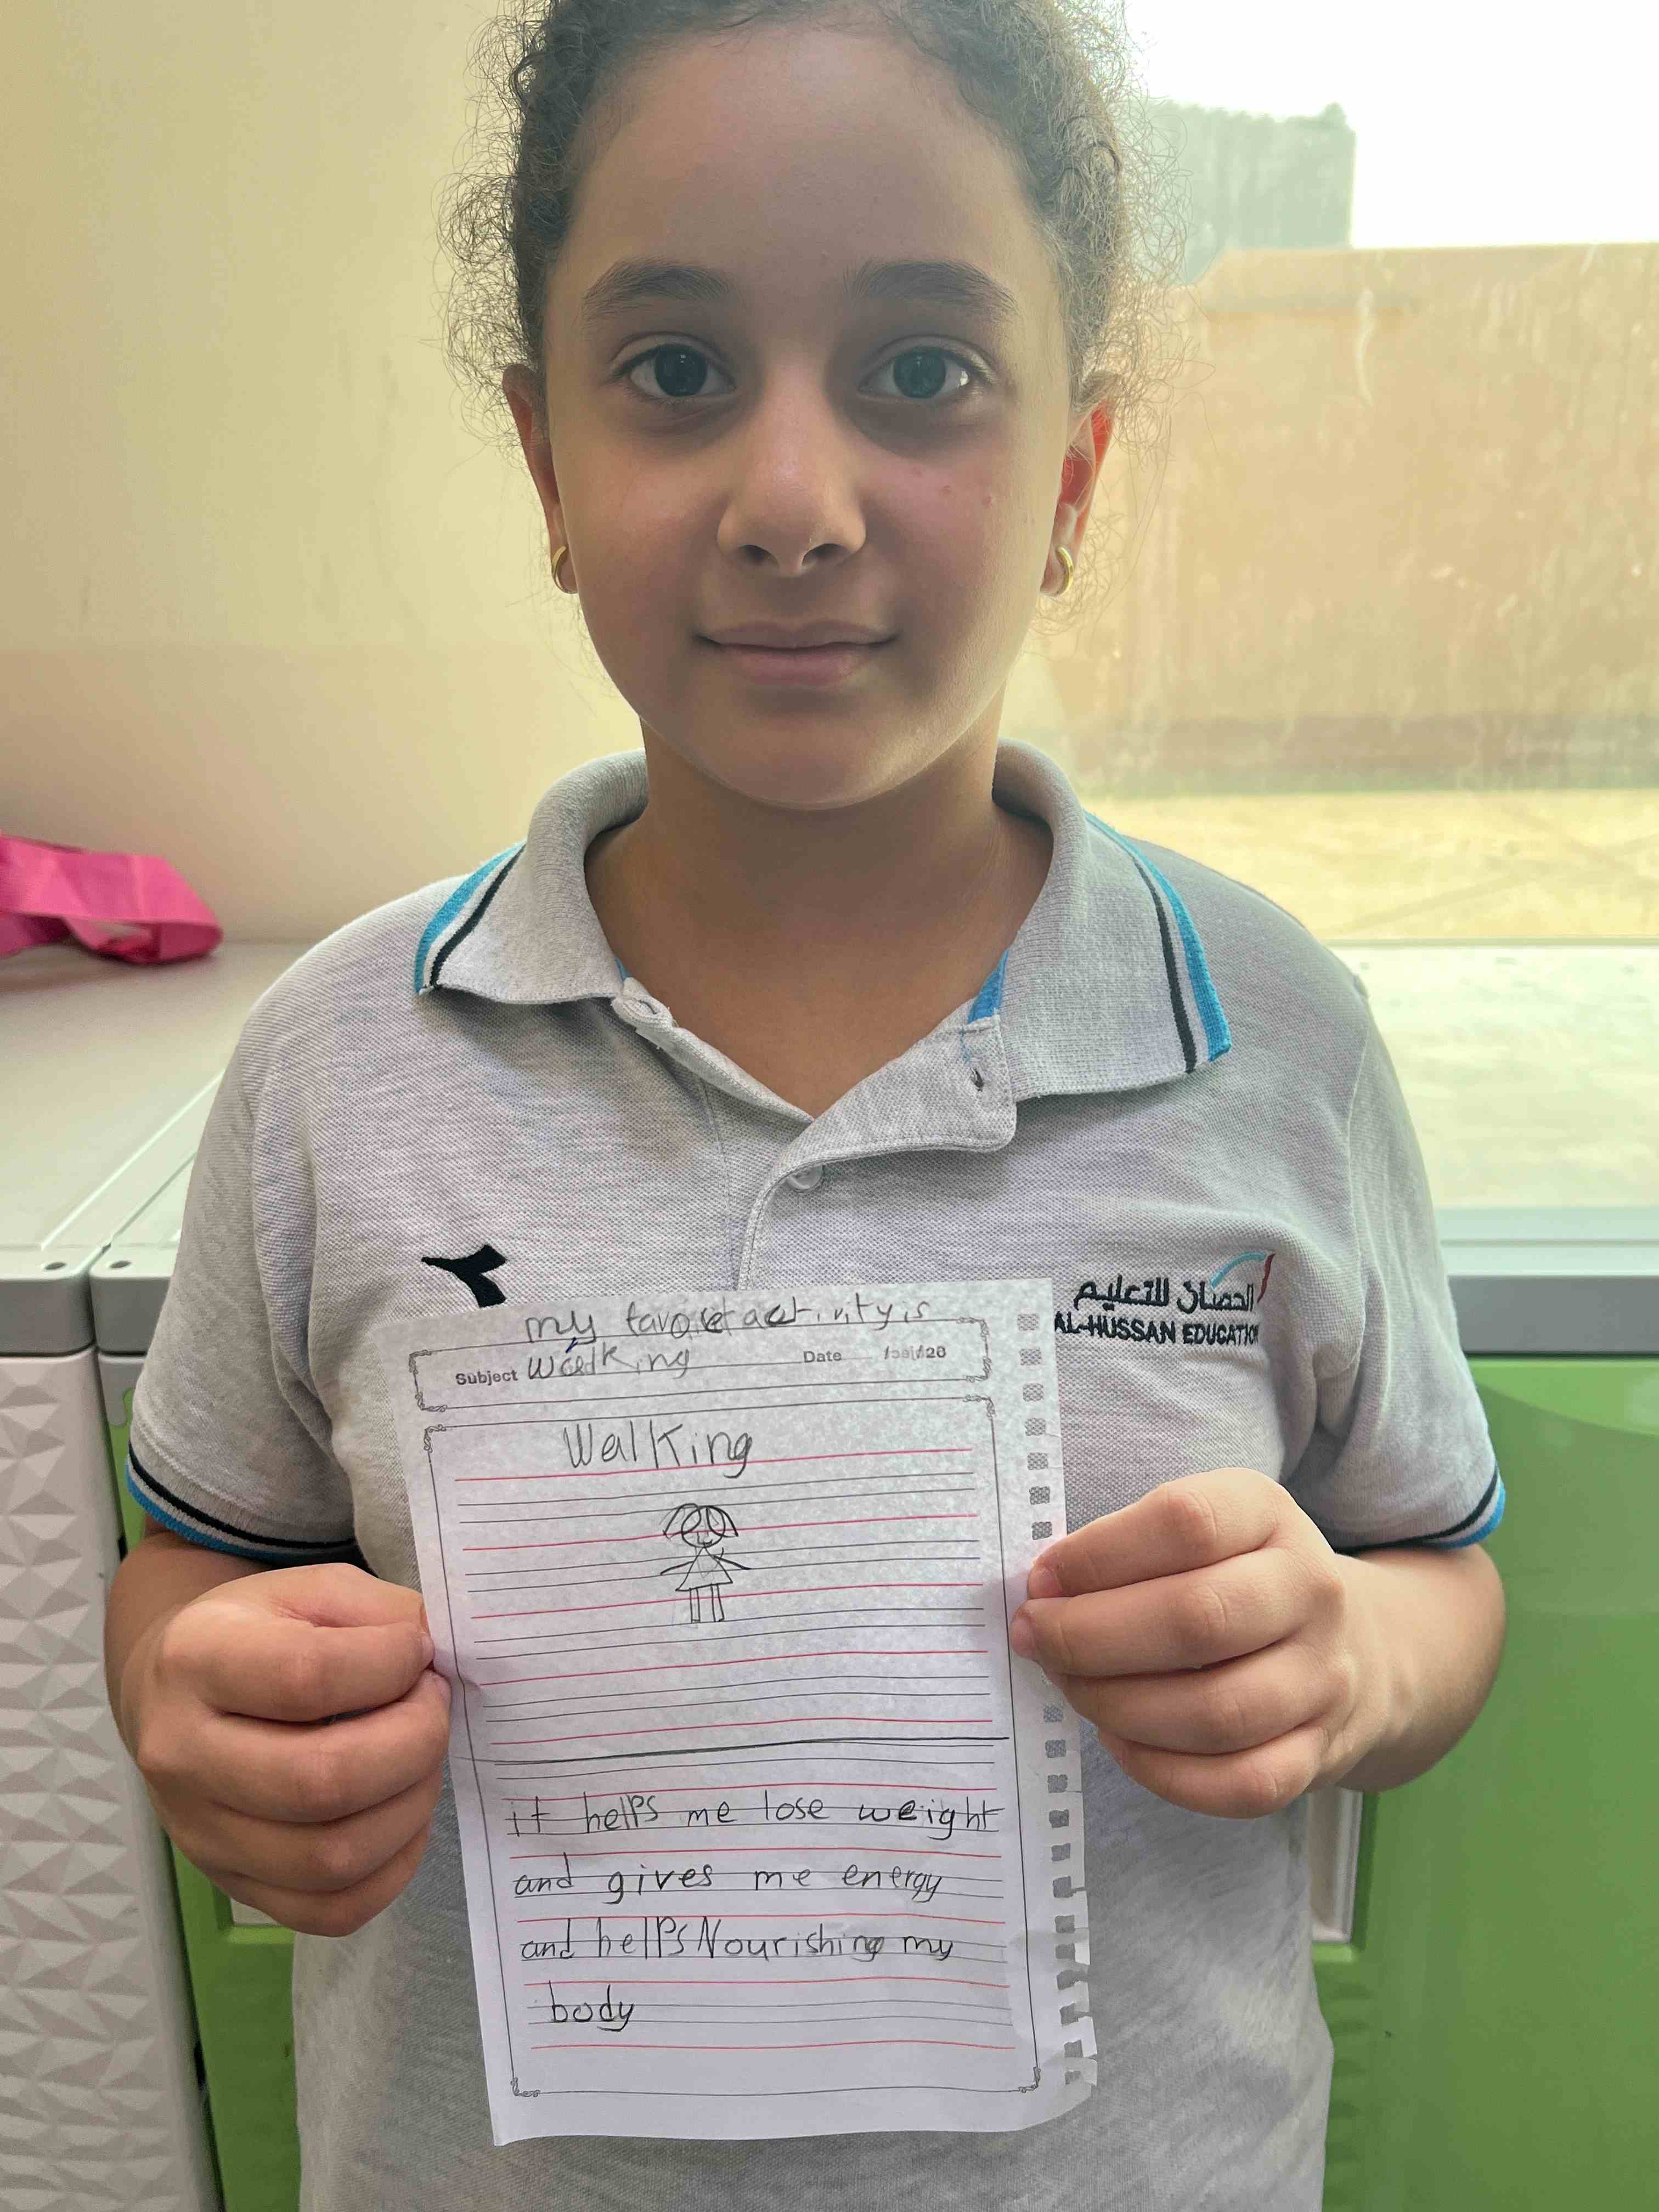 الحصان للتعليم
AL-HUSSAN EDUCATION
my favoret activity is
Subject walking Date / /20
Walking
it helps me lose weight
and gives me energy
and hellps Nourishing my
body